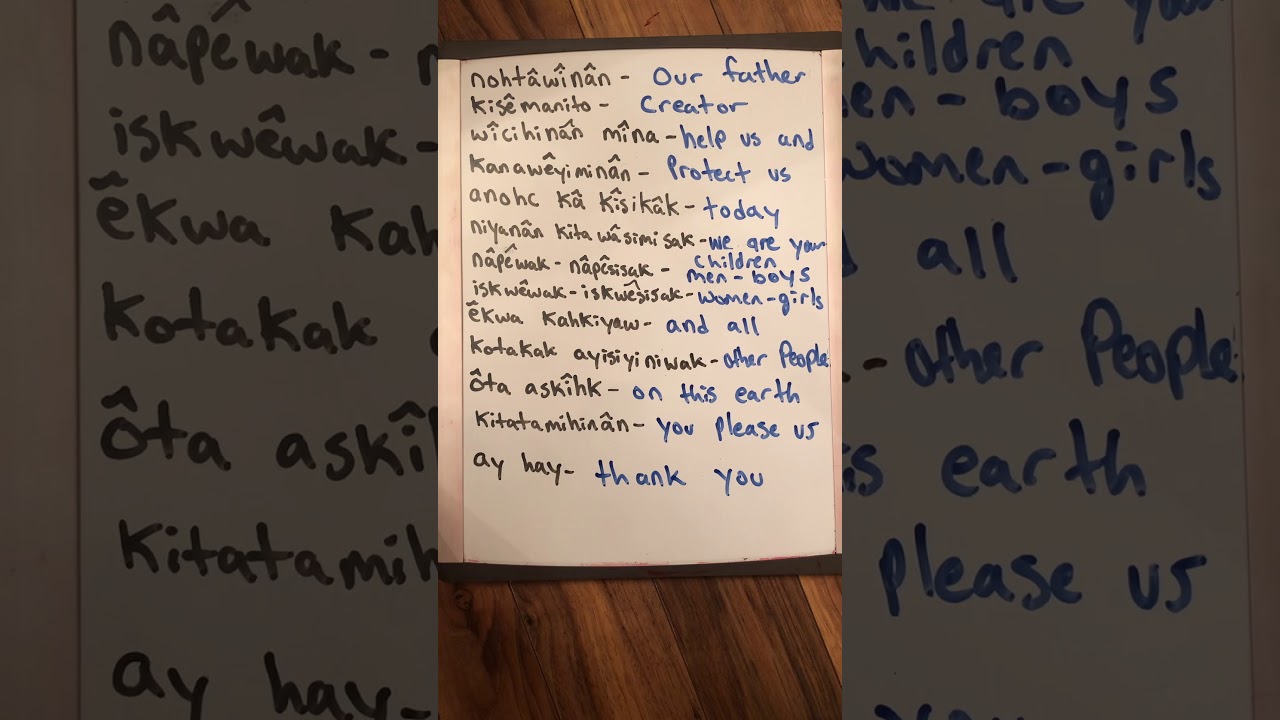 nohtâwînân - Our father
kisêmanito - Creator
wîcihinân mîna - help us and
kanawêyiminân - Protect us
anohc kâ kîsikâk - today
niyanân kitawâsimisak - we are your children
nâpêwak - nâpêsisak - men - boys
iskwêwak - iskwêsisak - women - girls
êkwa kahkiyaw - and all
kotakak ayisiyiniwak - other People
ôta askîhk - on this earth
kitatamihinân - you please us
ay hay - thank you